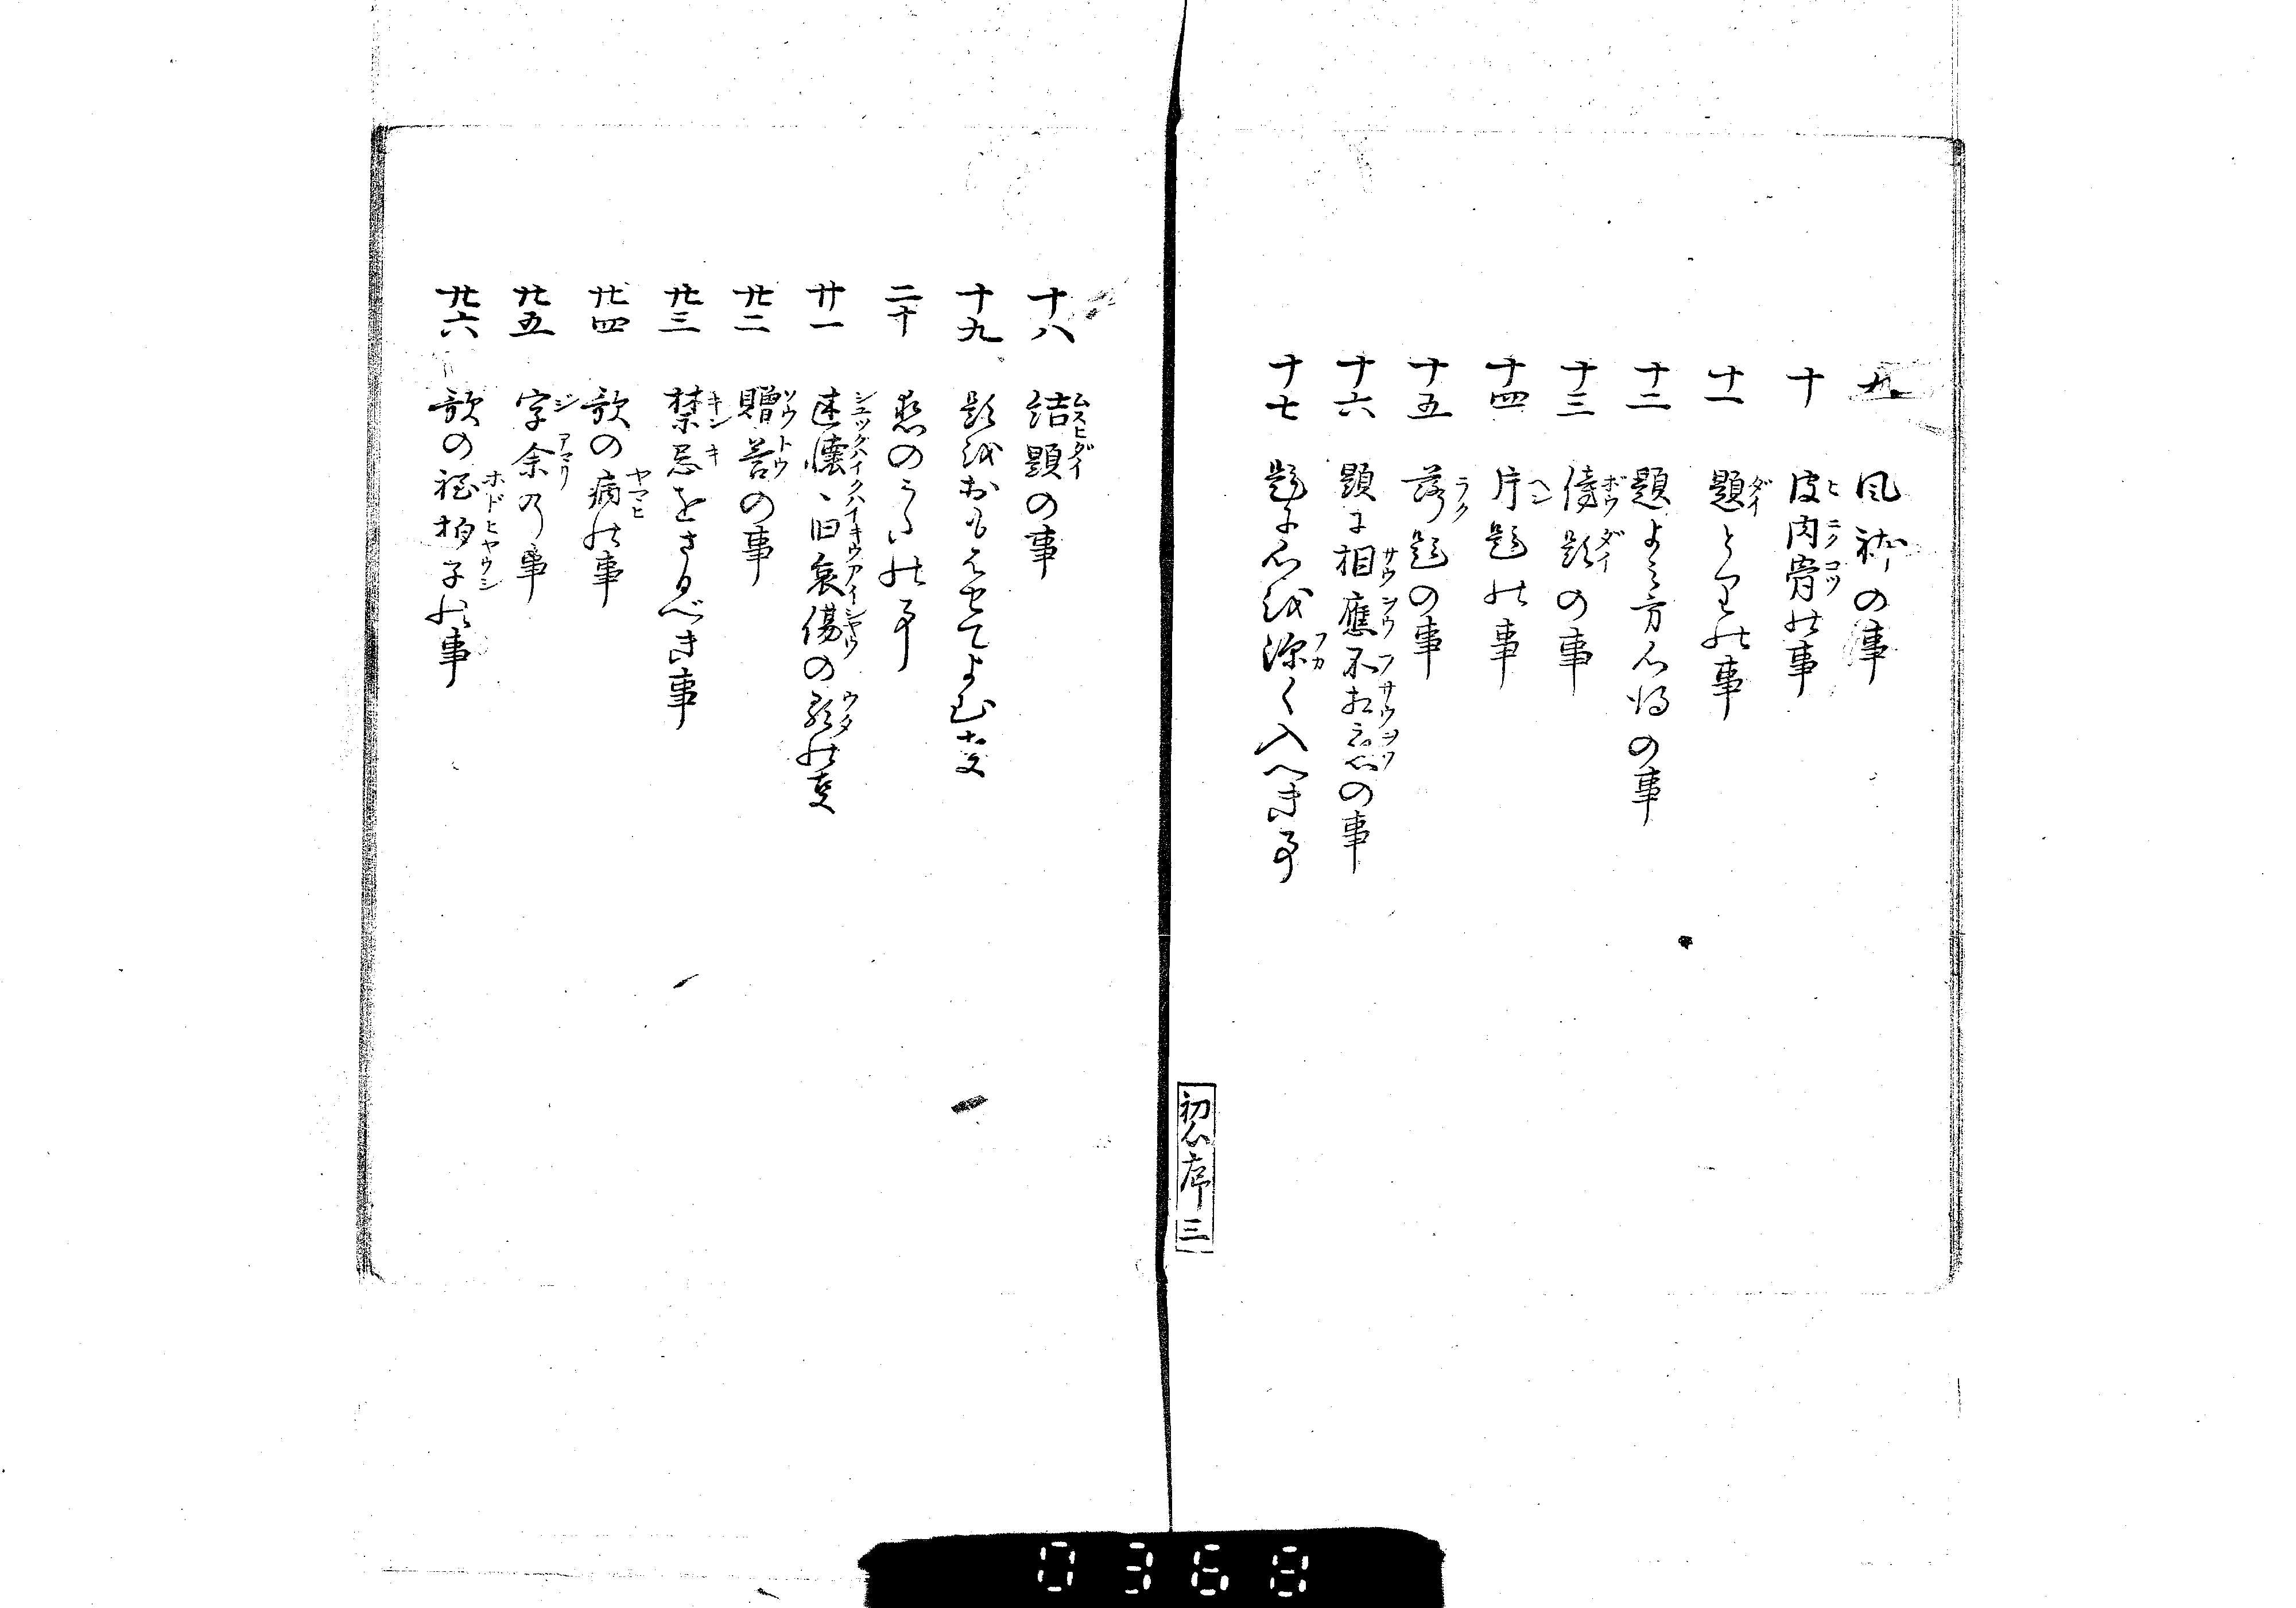 九　風躰の事
十　皮肉骨の事
十一　題とりの事
十二　題よみ方心得の事
十三　傍題の事
十四　片題の事
十五　落題の事
十六　題に相應不相應の事
十七　題に心を深く入へき事
初心序 三
十八　結題の事
十九　題をおもはせてよむ事
二十　恋のうたの事
廿一　述懐、旧哀傷の歌の事
廿二　贈答の事
廿三　禁忌をさるべき事
廿四　歌の病の事
廿五　字余の事
廿六　歌の程拍子の事
0368